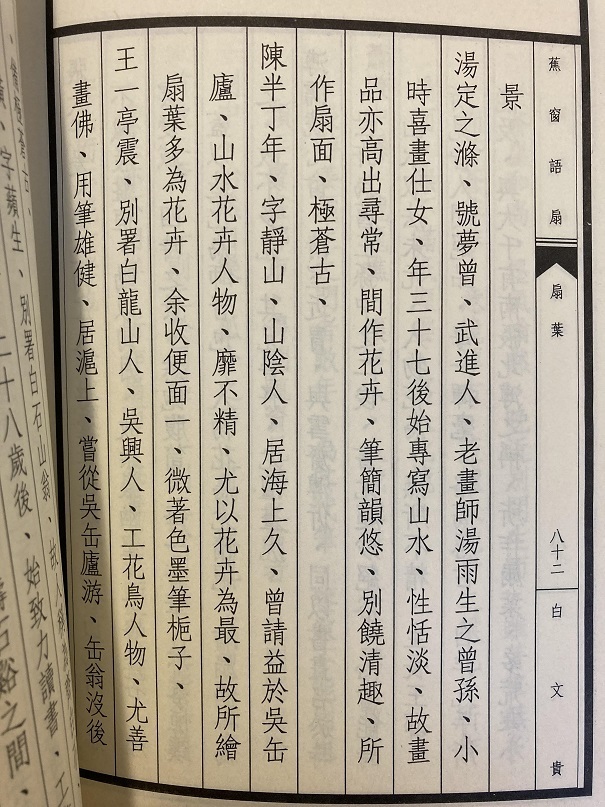 蕉窗語扇
扇葉
八十二
白文貴
景
湯定之滌、號夢曾、武進人、老畫師湯雨生之曾孫、小
時喜畫仕女、年三十七後始專寫山水、性恬淡、故畫
品亦高出尋常、間作花卉、筆簡韻悠、別饒清趣、所
作扇面、極蒼古、
陳半丁年、字靜山、山陰人、居海上久、曾請益於吳缶
廬、山水花卉人物、靡不精、尤以花卉為最、故所繪
扇葉多為花卉、余收便面一、微著色墨筆梔子、
王一亭震、別署白龍山人、吳興人、工花鳥人物、尤善
畫佛、用筆雄健、居滬上、嘗從吳缶廬游、缶翁沒後
字蘋生、別署白石山翁、
二十八歲後、始致力讀書、工
石谿之間、